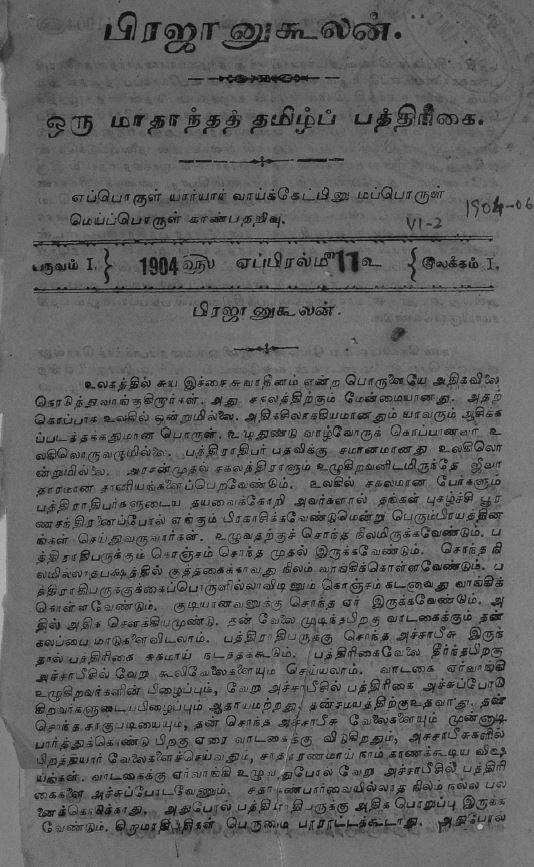 பிரஜானுகூலன்.
ஒரு மாதாந்தத் தமிழ்ப் பத்திரிகை.
எப்பொருள் யார்யார் வாய்க்கேட்பினு மப்பொருள்
மெய்ப்பொருள் காண்பதறிவு.
1904-06
VI-2
பருவம் I. } 1904 ௵ ஏப்பிரல்௴ 11 உ { இலக்கம் I.
பிரஜானுகூலன்.
உலகத்தில் சுய இச்சை சுவாதீனம் என்ற பொருளையே அதிகவிலை
கொடுத்துவாங்குகிறார்கள். அது சகலத்திற்கும் மேன்மையானது. அதற்
கொப்பாக உலகில் ஒன்றுமில்லை. அதிகசிலாக்கியமானதும் யாவரும் ஆசிக்க
ப்படத்தக்கதுமான பொருள். உழுதுண்டு வாழ்வோருக் கொப்பானவர் உ
லகிலொருவருமில்லை. பத்திராதிபர் பதவிக்கு சமானமானது உலகிலொ
ன்றுமில்லை. அரசன்முதல் சகலத்திராளும் உழுகிறவனிடமிருந்தே ஜீவா
தாரமான தானியங்களைப்பெறவேண்டும். உலகில் சகலமான பேர்களும்
பத்திராதிபர்களுடைய தயவைக்கோறி அவர்களால் தங்கள் புகழ்ச்சி பூர
ணசந்திரனைப்போல் எங்கும் பிரகாசிக்கவேண்டுமென்று பெரும்பிரயத்தின
ங்கள் செய்துவருவார்கள். உழுவதற்குச் சொந்த நிலமிருக்கவேண்டும். ப
த்திராதிபருக்கும் கொஞ்சம் சொந்த முதல் இருக்கவேண்டும். சொந்த நி
லமில்லாதபக்ஷத்தில் குத்தகைக்காவது நிலம் வாங்கிக்கொள்ளவேண்டும். ப
த்திராதிபருக்குக்கைப்பொருளில்லாவிடினும் கொஞ்சம் கடனாவது வாங்கிக்
கொள்ளவேண்டும். குடியானவனுக்கு சொந்த ஏர் இருக்கவேண்டும். அ
தில் அதிக சௌக்கியமுண்டு. தன் வேலை முடிந்தபிறகு வாடகைக்கும் தன்
கலப்பை மாடுகளைவிடலாம். பத்திராதிபருக்கு சொந்த அச்சாபீசு இருந்
தால் பத்திரிகை சுகமாய் நடத்தக்கூடும். பத்திரிகைவேலை தீர்ந்தபிறகு
அச்சாபீசில் வேறு கூலிவேலைகளையும் செய்யலாம். வாடகை ஏர்வாங்கி
உழுகிறவர்களின் பிழைப்பும், வேறு அச்சாபீசில் பத்திரிகை அச்சுப்போடு
கிறவர்களுடையபிழைப்பும் ஆதாயமற்றது, தன்சமயத்திற்குஉதவாது. தன்
சொந்த சாகுபடியையும், தன் சொந்த அச்சாபீசு வேலைகளையும் முன்னாடி
பார்த்துக்கொண்டு பிறகு ஏரை வாடகைக்கு விடுகிறதும், அச்சாபீசுகளில்
பிறத்தியார் வேலைகளைச்செய்வதும், சாதாரணமாய் நாம் காணக்கூடிய விஷ
யங்கள். வாடகைக்கு ஏர்வாங்கி உழுவதுபோல் வேறு அச்சாபீசில் பத்திரி
கைகளை அச்சுப்போடவேணும். சதாகாணபார்வையில்லாத நிலம் நல்ல பல
னைக்கொடுக்காது, அதுபோல் பத்திராதிபருக்கு அதிக பொறுப்பு இருக்க
வேண்டும். கிறுமாதிரிகள் பெருமை பாராட்டக்கூடாது. அதுபோல